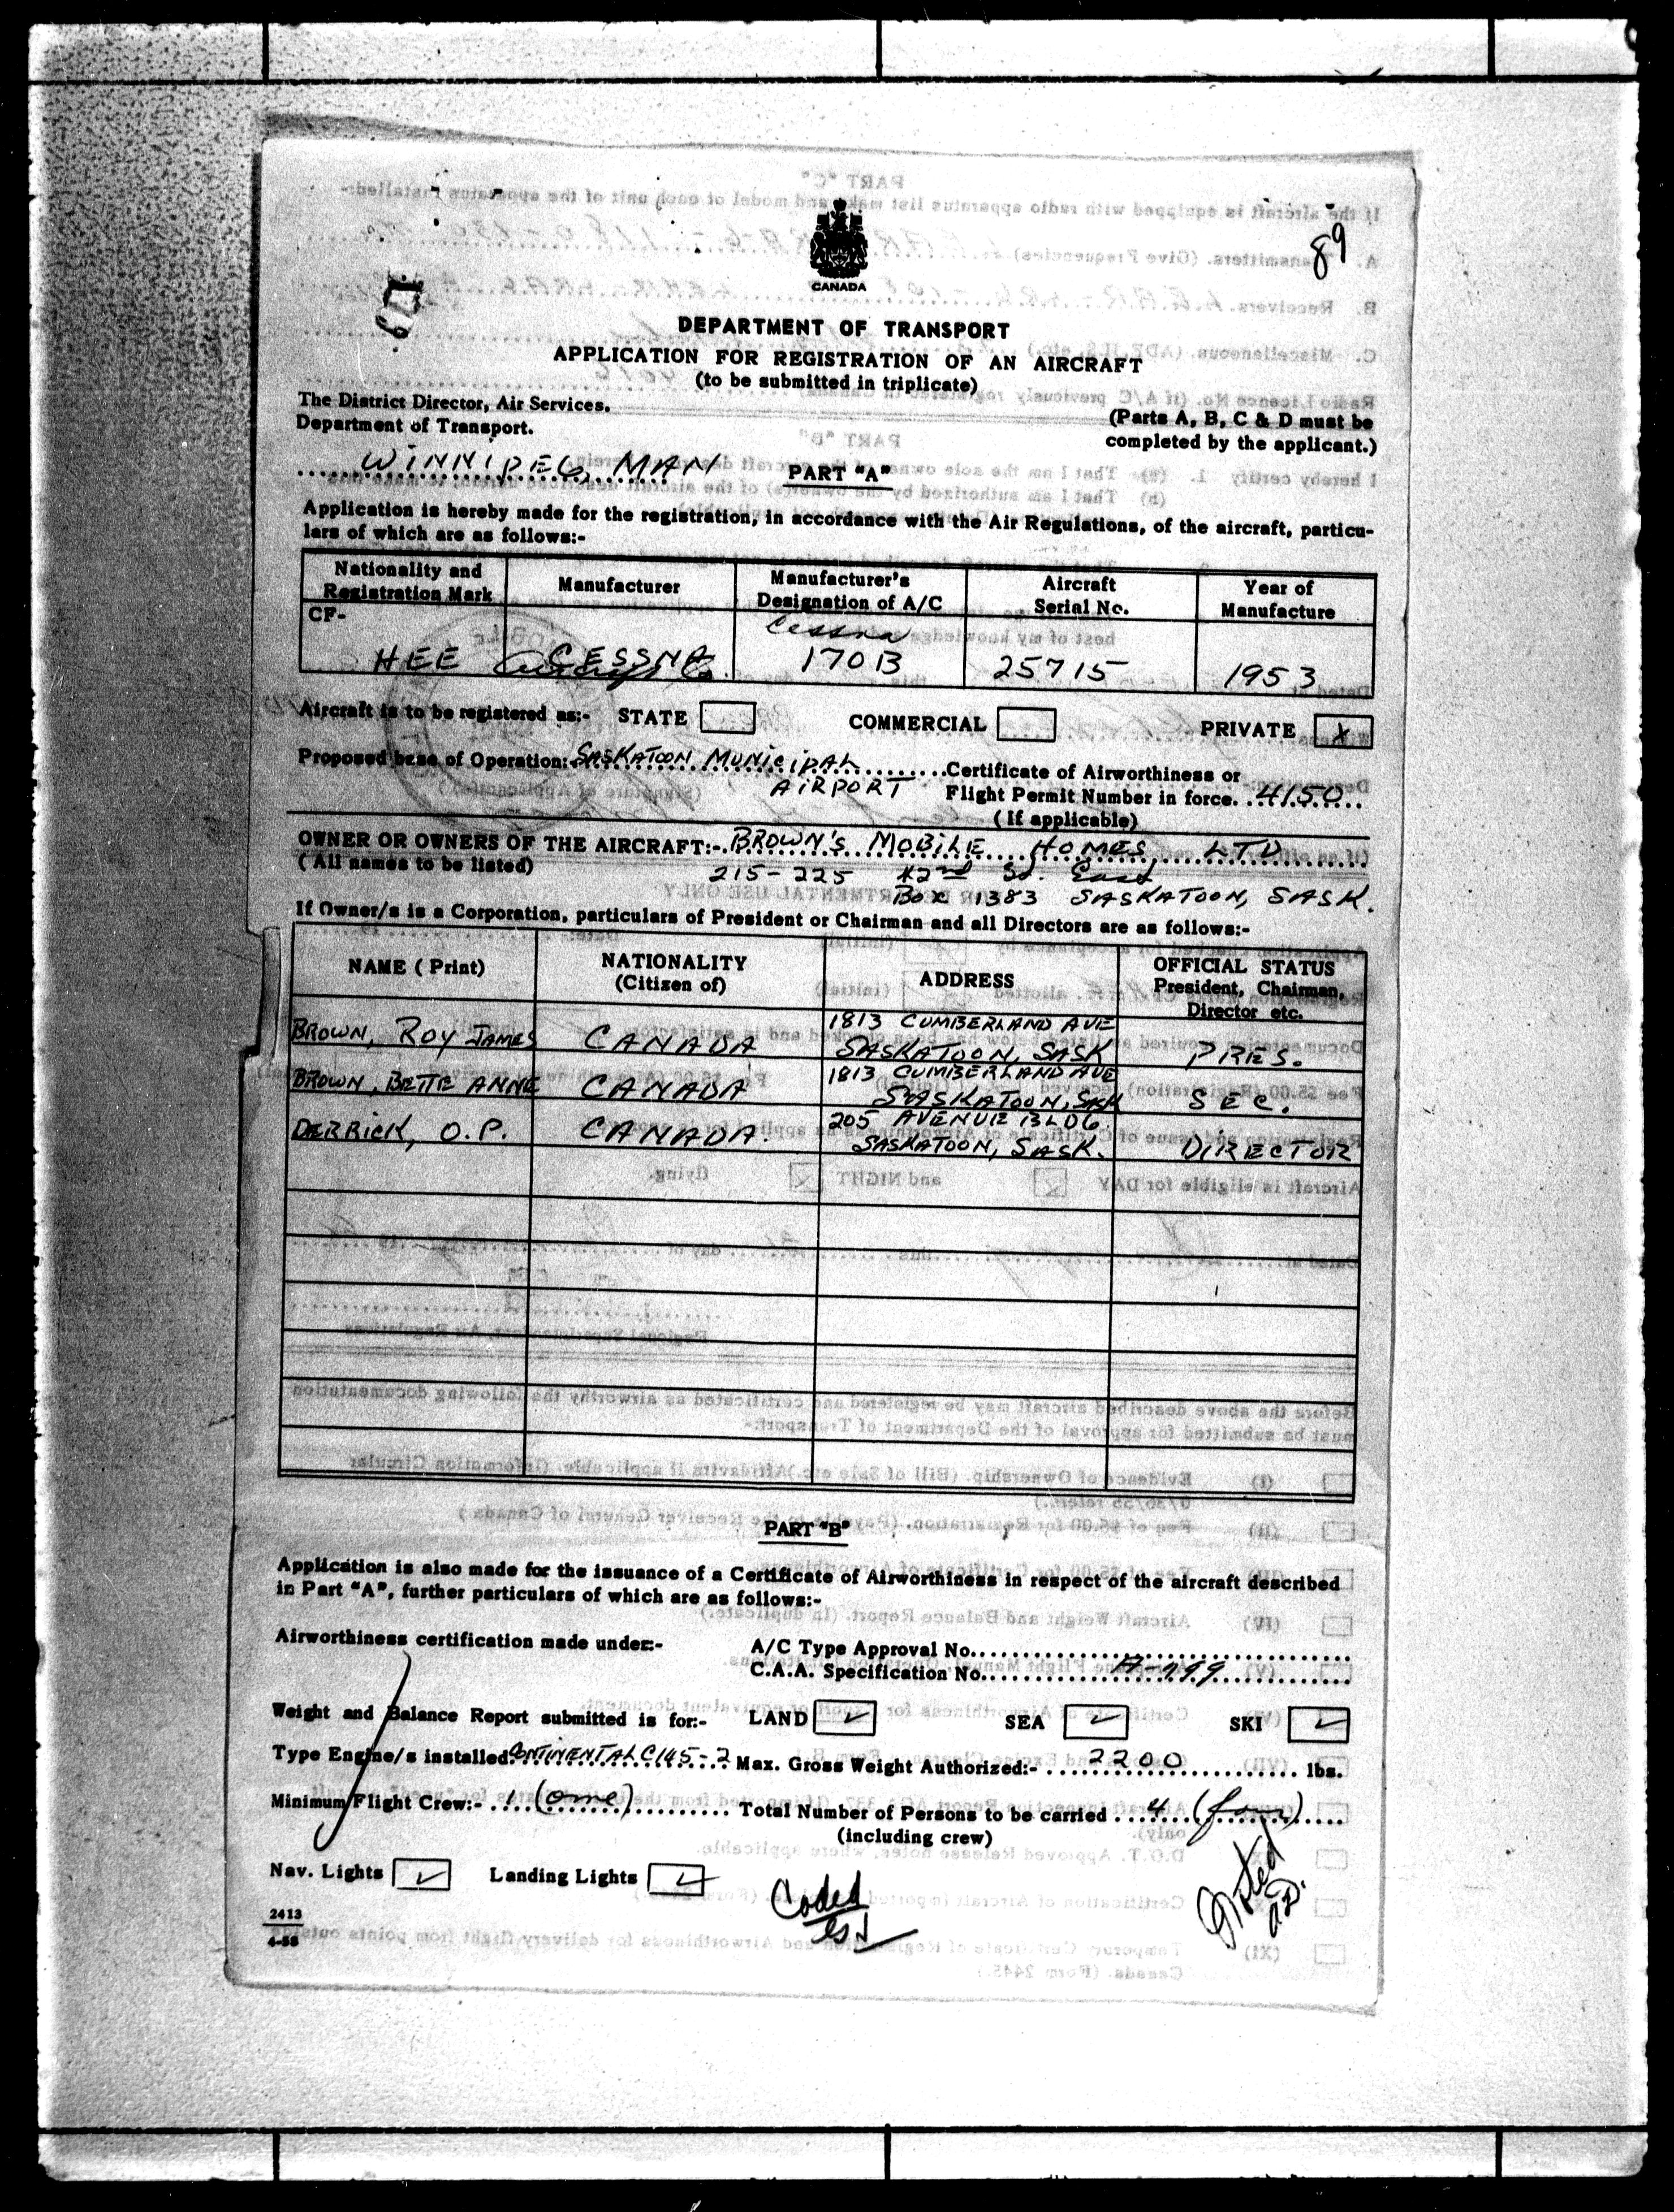 89
CANADA
DEPARTMENT OF TRANSPORT
APPLICATION FOR REGISTRATION OF AN AIRCRAFT
(to be submitted in triplicate)
The District Director, Air Services,
Department of Transport.
(Parts A, B, C & D must be
completed by the applicant.)
WINNIPEG, MAN
PART "A"
Application is hereby made for the registration, in accordance with the Air Regulations, of the aircraft, particu-
lars of which are as follows:-
Nationality and Registration Mark
Manufacturer
Manufacturer's Designation of A/C
Aircraft Serial No.
Year of Manufacture
CF-
HEE
CESSNA
Cessna
170B
25715
1953
Aircraft is to be registered as:- STATE COMMERCIAL PRIVATE X
Proposed base of Operation: SASKATOON MUNICIPAL
AIRPORT
Certificate of Airworthiness or
Flight Permit Number in force. 4150
(If applicable)
OWNER OR OWNERS OF THE AIRCRAFT:- BROWN'S MOBILE HOMES LTD
(All names to be listed)
215-225 42nd St. East
Box 1383 SASKATOON, SASK.
If Owner/s is a Corporation, particulars of President or Chairman and all Directors are as follows:-
NAME (Print)
NATIONALITY (Citizen of)
ADDRESS
OFFICIAL STATUS President, Chairman, Director etc.
BROWN, ROY JAMES CANADA 1813 CUMBERLAND AVE SASKATOON, SASK PRES.
BROWN, BETTE ANNE CANADA 1813 CUMBERLAND AVE SASKATOON, SASK SEC.
DERRICK, O.P. CANADA. 205 AVENUE BLDG. SASKATOON, SASK. DIRECTOR
PART "B"
Application is also made for the issuance of a Certificate of Airworthiness in respect of the aircraft described
in Part "A", further particulars of which are as follows:-
Airworthiness certification made under:-
A/C Type Approval No.
C.A.A. Specification No. A-799
Weight and Balance Report submitted is for:- LAND ✓ SEA ✓ SKI ✓
Type Engine/s installed CONTINENTAL C145-2 Max. Gross Weight Authorized:- 2200 lbs.
Minimum Flight Crew:- 1 (one) Total Number of Persons to be carried 4 (four)
(including crew)
Nav. Lights ✓ Landing Lights ✓
Coded
Noted
2413
4-58